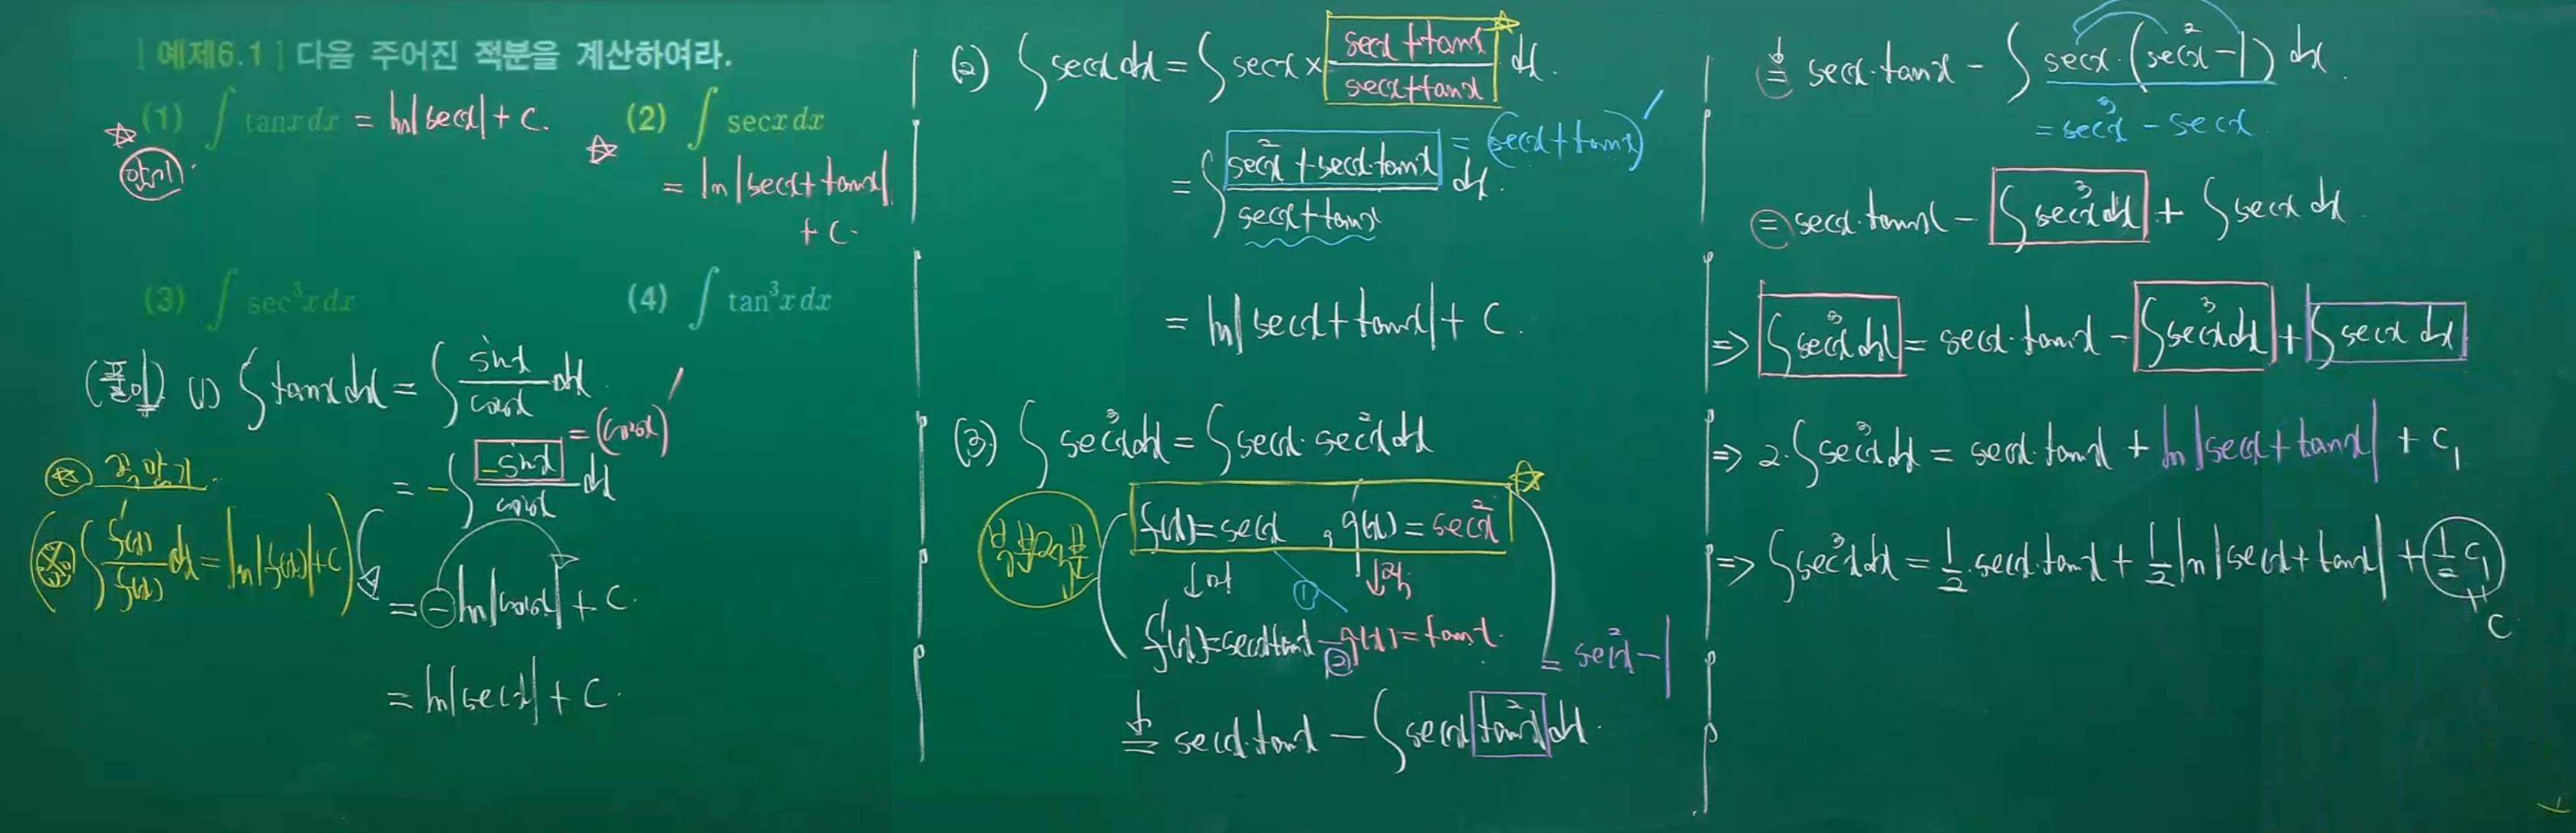 | 예제6.1 | 다음 주어진 적분을 계산하여라.
(1) ∫ tanx dx = ln|secx| + C.
암기
(2) ∫ secx dx
= ln|secx+tanx|
+ C.
(3) ∫ sec³x dx
(4) ∫ tan³x dx
(풀이) (1) ∫ tanx dx = ∫ sinx/cosx dx.
= -∫ -sinx/cosx dx = (cosx)′
꼭 암기.
∫ f′(x)/f(x) dx = ln|f(x)| + C
= -ln|cosx| + C.
= ln|secx| + C.
(2) ∫ secx dx = ∫ secx × (secx+tanx)/(secx+tanx) dx.
= ∫ (sec²x + secx·tanx)/(secx+tanx) dx. = (secx+tanx)′
= ln|secx+tanx| + C.
(3) ∫ sec³x dx = ∫ secx · sec²x dx
f(x)=secx , g′(x) = sec²x
↓미 ① ↓적
f′(x)=secxtanx ② g(x) = tanx.
= sec²x-1
= secx·tanx - ∫ secx tan²x dx.
= secx·tanx - ∫ secx·(sec²x-1) dx.
= sec³x - secx.
= secx·tanx - ∫ sec³x dx + ∫ secx dx
⇒ ∫ sec³x dx = secx·tanx - ∫ sec³x dx + ∫ secx dx
⇒ 2·∫ sec³x dx = secx·tanx + ln|secx+tanx| + C₁
⇒ ∫ sec³x dx = 1/2 · secx·tanx + 1/2 ln|secx+tanx| + 1/2 C₁
"
C